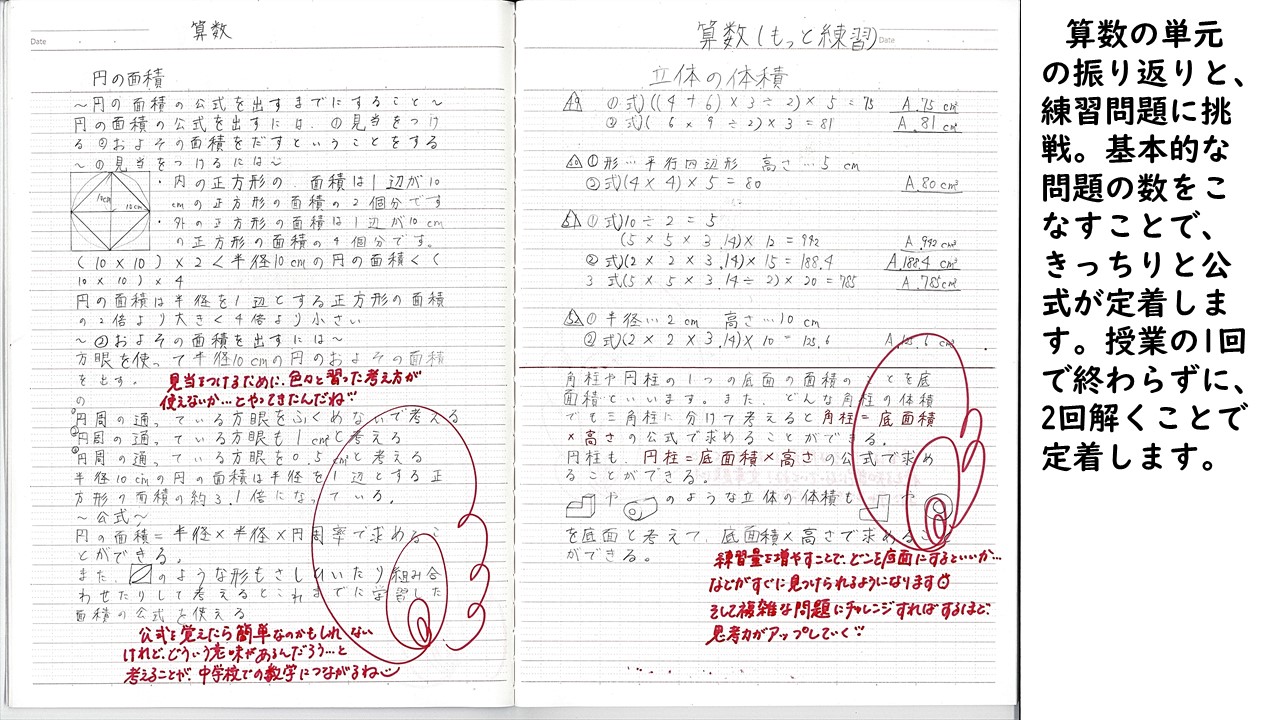 Date
算数
円の面積
～円の面積の公式を出すまでにすること～
円の面積の公式を出すには、①見当をつけ
る ②およその面積をだすということをする
～①見当をつけるには～
10cm
10cm
・内の正方形の、面積は1辺が10
cmの正方形の面積の2個分です
・外の正方形の面積は1辺が10cm
の正方形の面積の4個分です。
(10×10)×2<半径10cmの円の面積<(
10×10)×4
円の面積は半径を1辺とする正方形の面積
の2倍より大きく4倍より小さい
～②およその面積を出すには～
方眼を使って半径10cmの円のおよその面積
を出す。
見当をつけるために、色々と習った考え方が
使えないか…とやってきたんだね
の
円周の通っている方眼をふくめないで考える
円周の通っている方眼も1cm²と考える
円周の通っている方眼を0.5cm²と考える
半径10cmの円の面積は半径を1辺とする正
方形の面積の約3.1倍になっている。
～公式～
円の面積=半径×半径×円周率で求めるこ
とができる。
また、のような形もさしひいたり組み合
わせたりして考えるとこれまでに学習した
面積の公式を使える
公式を覚えたら簡単なのかもしれない
けれど、どういう意味があるんだろう…と
考えることが、中学校での数学につながるね
算数(もっと練習)
Date
立体の体積
①式)((4+6)×3÷2)×5=75 A.75cm³
②式)(6×9÷2)×3=81 A.81cm³
①形…平行四辺形 高さ…5cm
②式)(4×4)×5=80 A.80cm³
①式)10÷2=5
(5×5×3.14)×12=942 A.942cm³
②式)(2×2×3.14)×15=188.4 A.188.4cm³
3 式(5×5×3.14÷2)×20=785 A.785cm³
①半径…2cm 高さ…10cm
②式)(2×2×3.14)×10=125.6 A.125.6cm³
角柱や円柱の1つの底面の面積のことを底
面積といいます。また、どんな角柱の体積
でも三角柱に分けて考えると角柱=底面積
×高さの公式で求めることができる。
円柱も、円柱=底面積×高さの公式で求め
ることができる。
やのような立体の体積も、や
を底面と考えて、底面積×高さで求めること
ができる。
練習量を増やすことで、どこを底面にするといいか…
などがすぐに見つけられるようになります
そして複雑な問題にチャレンジすればするほど、
思考力がアップしていく
算数の単元
の振り返りと、
練習問題に挑
戦。基本的な
問題の数をこ
なすことで、
きっちりと公
式が定着しま
す。授業の1回
で終わらずに、
2回解くことで
定着します。